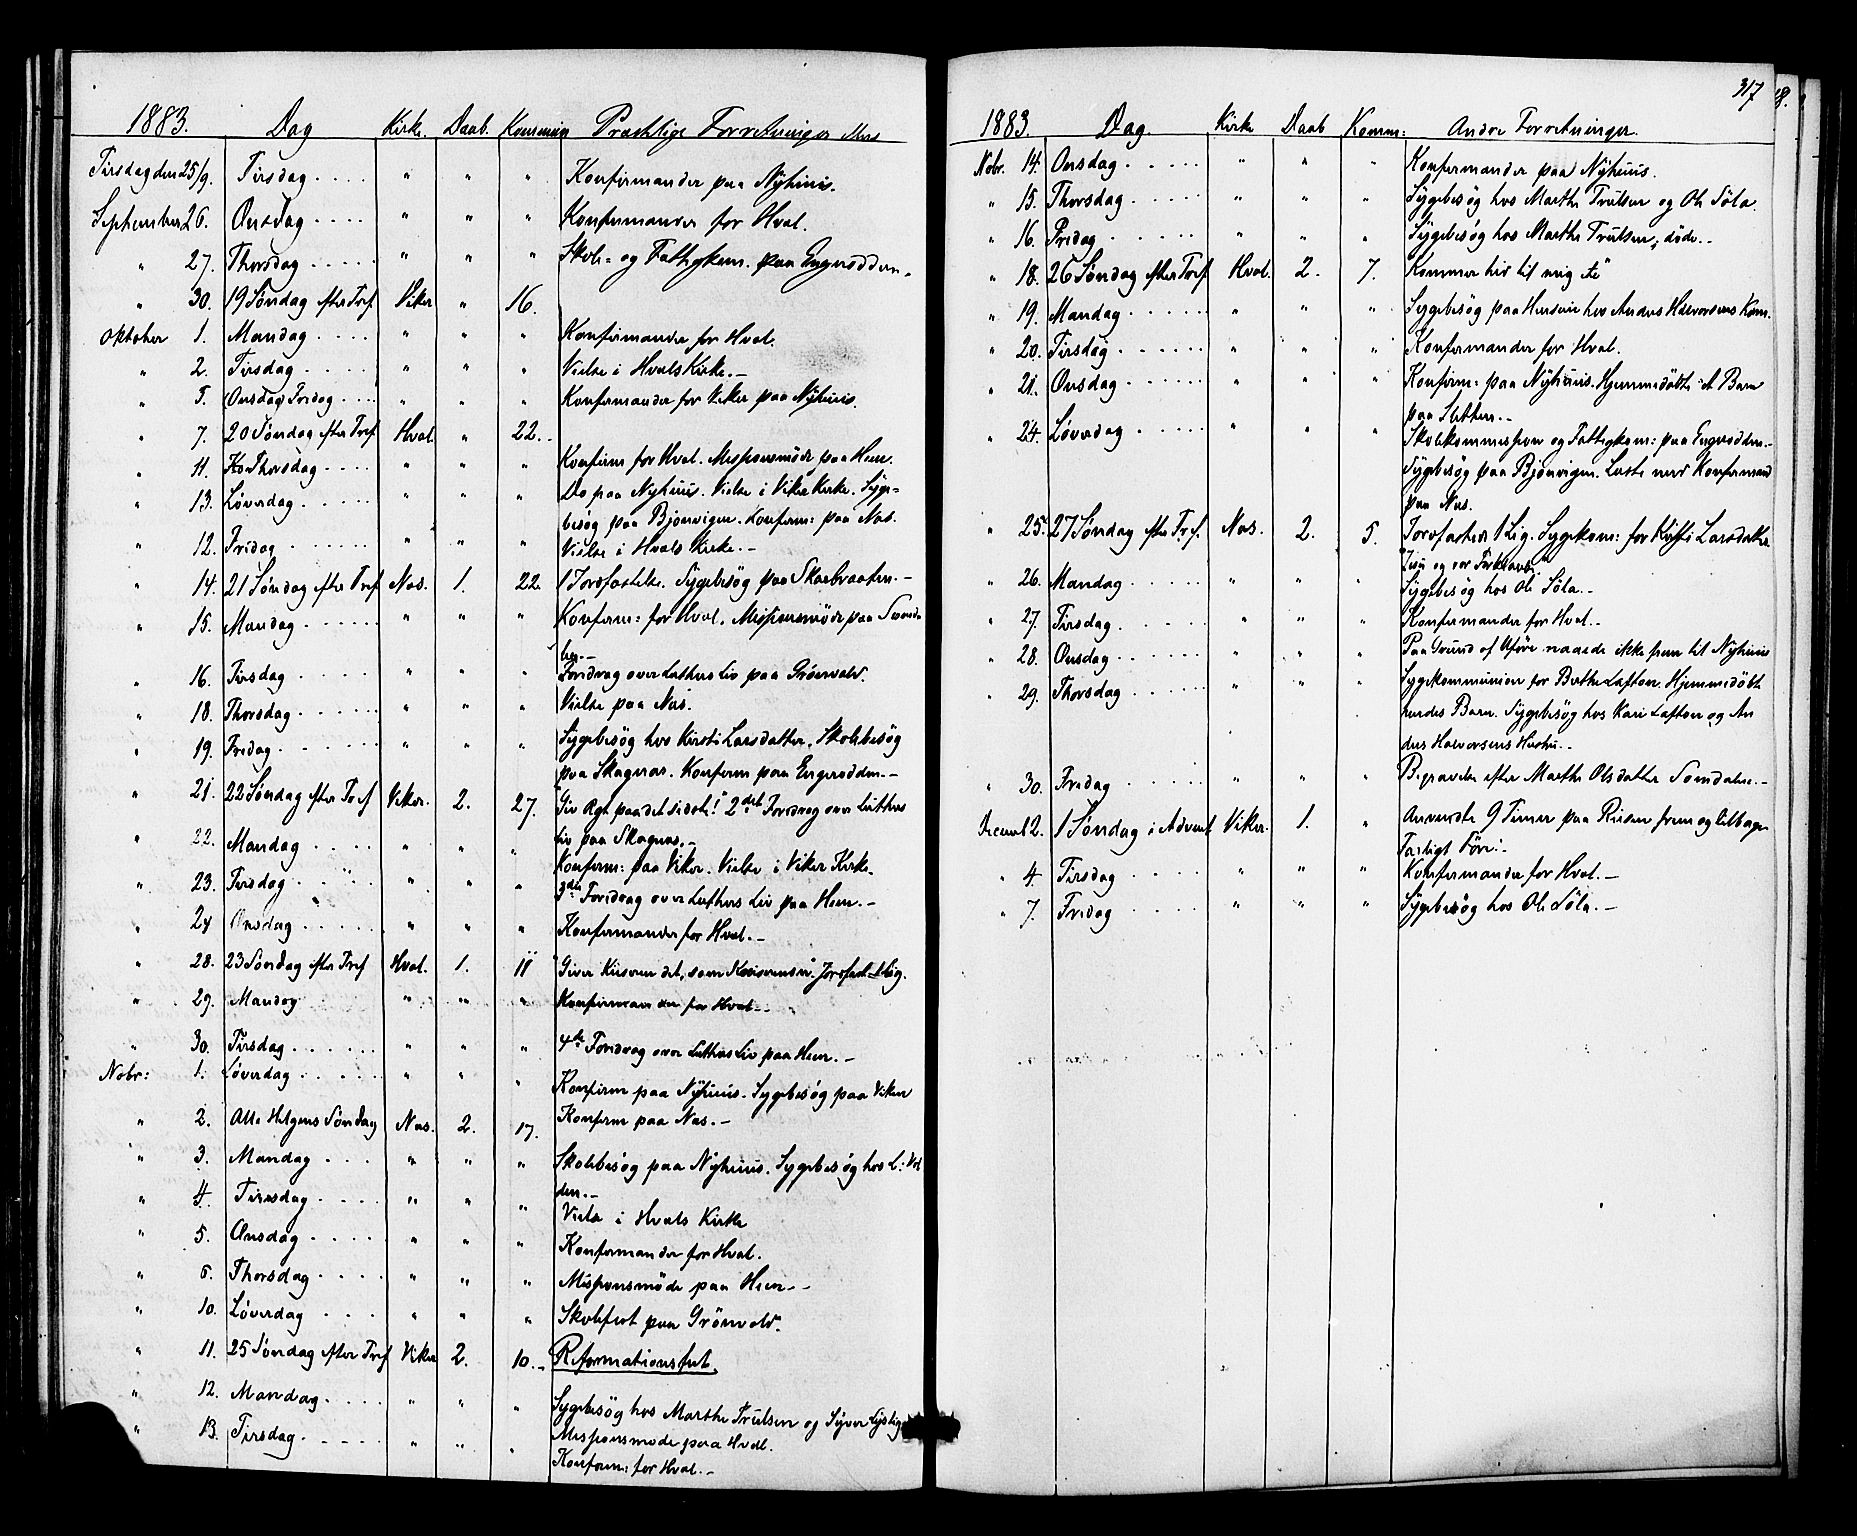 1883. Dag Kirke. Daab. Præstlige Forretninger
Tirsdag den 25/9. Tirsdag . . . . " " " Konfirmander paa Nyhuus.
September 26. Onsdag . . . . " " " Konfirmander for Hval.
" 27. Thorsdag . . . . " " " Skole- og Fattigkom. paa Engerodden.
" 30. 19 Søndag efter Tref Viker " 16.
Oktober 1. Mandag . . . . " " " Konfirmander for Hval.
" 2. Tirsdag . . . . " " " Vielse i Hvals Kirke.
" 5. Fredag . . . " " " Konfirmander for Viker paa Nyhuus.
" 7. 20 Søndag efter Tref Hval. " 22.
" 11. Thorsdag . . . . " " " Konfirm for Hval. Missionsmøde paa Heen.
" 13. Løverdag . . . . " " " Do paa Nyhuus. Vielse i Viker Kirke. Syge-
besøg paa Bjonevigen. Konfirm: paa Næs.
" 12. Fredag . . . . . " " " Vielse i Hvals Kirke.
" 14. 21 Søndag efter Tref Næs. 1. 22. 1 Jordfæstelse. Sygebesøg paa Skarbraaten.
" 15. Mandag . . . . " " " Konfirm: for Hval. Missionsmøde paa
" 16. Tirsdag . . . . . " " " Foredrag over Luthers Liv paa Grønvold.
" 18. Thorsdag . . . . . " " " Vielse paa Næs.
" 19. Fredag . . . . . " " " Sygebesøg hos Kirsti Larsdatter. Skolebesøg
paa Skagnæs. Konfirm paa Engerodden.
" 21. 22 Søndag efter Tref Viker. 2. 27. Giv Agt paa det sidste! 2det Foredrag over Luthers
Liv paa Skagnæs.
" 22. Mandag . . . . " " "
Konfirm: paa Viker. Vielse i Viker Kirke.
" 23. Tirsdag . . . . " " " 3die Foredrag over Luthers Liv paa Heen.
" 24 Onsdag . . . . . " " " Konfirmander for Hval.
" 28. 23 Søndag efter Tref Hval. 1. 11 Giver Keiseren det, som Keiserens er. Jordfæst. 1 Lig.
" 29. Mandag . . . . " " " Konfirmander for Hval.
" 30. Tirsdag . . . . . . " " " 4de Foredrag over Luthers Liv paa Heen.
Nobr: 1. Løverdag . . . . . " " " Konfirm paa Nyhuus. Sygebesøg paa Viker
" 2. Alle Helgens Søndag Næs. 2. 17. Konfirm paa Næs.
" 3. Mandag . . . . " " " Skolebesøg paa Nyhuus. Sygebesøg hos
den.
" 4. Tirsdag . . . . " " " Vielse i Hvals Kirke
" 5. Onsdag . . . . . " " " Konfirmander for Hval.
" 6. Thorsdag . . . . " " " Missionsmøde paa Heen.
" 10. Løverdag . . . . " " " Skolefest paa Grønvold.
" 11. 25 Søndag efter Tref Viker 2. 10. Reformationsfest.
" 12. Mandag . . . . " " " Sygebesøg hos Marthe Trulsen og Syver
Missionsmøde paa Hval.
" 13. Tirsdag . . . . . " " " Konfirm: for Hval.
317
1883. Dag. Kirke Daab Komm: Andre Forretninger.
Nobr. 14. Onsdag . . . . . " " " Konfirmander paa Nyhuus.
" 15. Thorsdag . . . . . " " " Sygebesøg hos Marthe Trulsen og Ole Søla.
" 16. Fredag . . . . . " " " Sygebesøg hos Marthe Trulsen, døde.
" 18. 26 Søndag efter Tref Hval. 2. 7. Kommer hid til mig
" 19. Mandag . . . . . . " " " Sygebesøg paa hos Anders Halvorsens Kone.
" 20. Tirsdag . . . . . . " " " Konfirmander for Hval.
" 21. Onsdag . . . . . . " " " Konfirm: paa Nyhuus. Hjemmedøbte et Barn
paa Sletten.
" 24. Løverdag . . . . . . " " " Skolekommission og Fattigkom: paa Engerodden.
Sygebesøg paa Bjonevigen. Læste med Konfirmand
paa Næs.
" 25. 27 Søndag efter Tref. Næs. 2. 5. Jordfæstet 1 Lig. Sygekom: for Kirsti Larsdatter
" 26. Mandag . . . . . . " " " Sygebesøg hos Ole Søla.
" 27. Tirsdag . . . . . . " " " Konfirmander for Hval.
" 28. Onsdag . . . . . . " " " Paa Grund af Uføre naaede ikke frem til Nyhuus
" 29. Thorsdag . . . . . . " " " Sygekommunion for Berthe Laften. Hjemmedøbte
hendes Barn. Sygebesøg hos Kari Laften og An
ders Halvorsens Hustru.
" 30. Fredag . . . . . " " " Begravelse efter Marthe Olsdatter Somdalen.
Decemb 2. 1 Søndag i Advent Viker. 1. " Anvendte 9 Timer paa Reisen frem og tilbage.
Farligt Føre.
" 4. Tirsdag . . . . . " " " Konfirmander for Hval.
" 7. Fredag . . . . . " " " Sygebesøg hos Ole Søla.